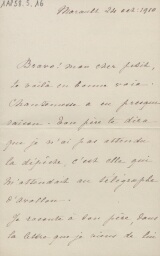 Marault, 24 oct. 1910
Bravo! mon cher petit,
te voilà en bonne voie.
Chantemesse a eu presque
raison. Ton père te dira
que je n'ai pas attendu
la dépêche, c'est elle qui
m'attendait au télégraphe
d'Avallon.
Je raconte à ton père, dans
la lettre que je viens de lui